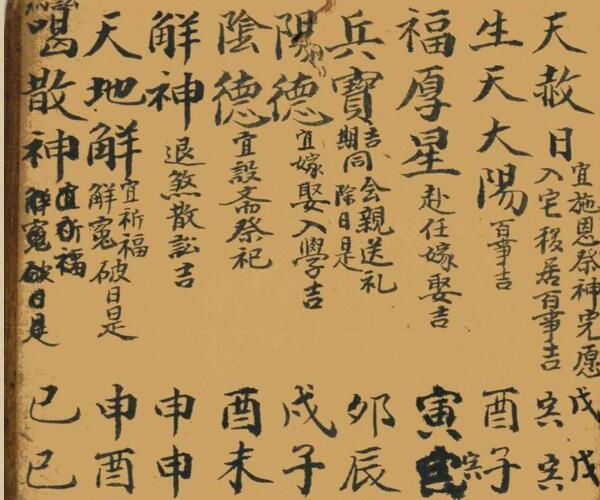 天赦日宜施恩祭神完愿入宅移居百事吉 戊寅 戊寅
生天大陽百事吉 酉 子
福厚星赴任嫁娶吉 寅
兵寶吉期同除日是会親送礼 卯 辰
陽德宜嫁娶入學吉 戌 子
陰德宜設斋祭祀 酉 未
解神退煞散訟吉 申 申
天地解宜祈福解冤破日是 申 酉
喝散神宜祈福解冤破日是 巳 巳